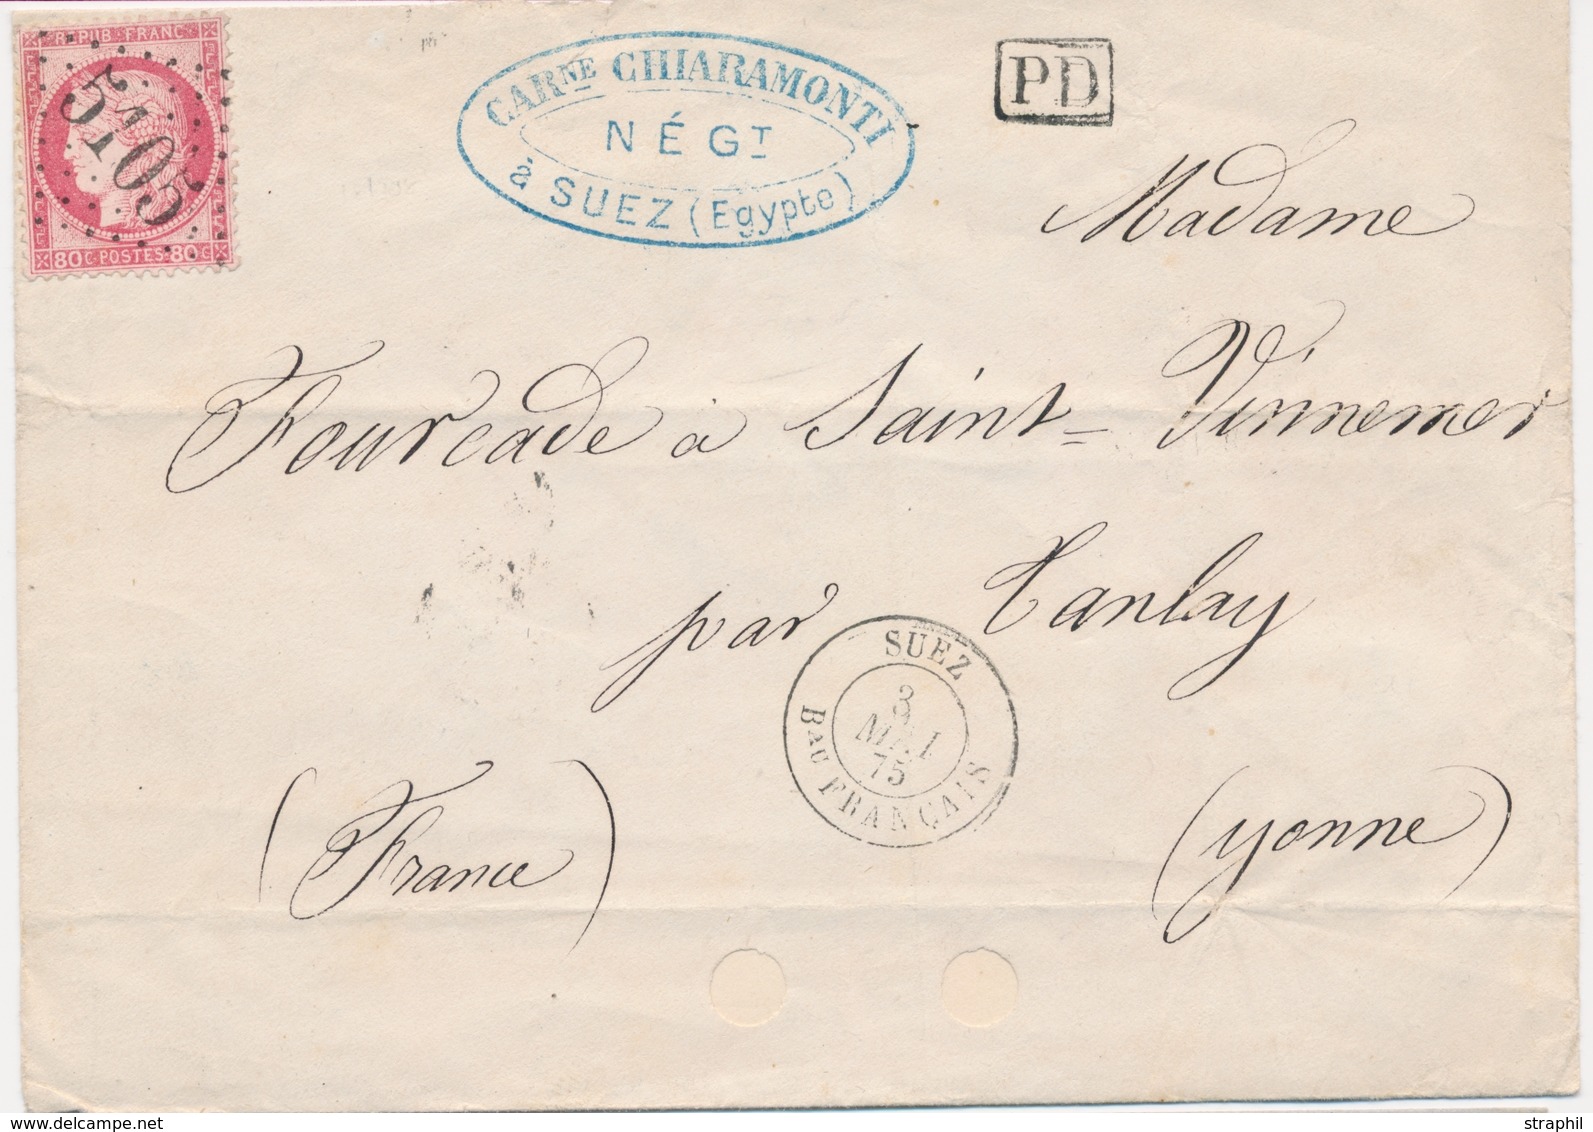 REPUB FRANC
5105
80 C POSTES 80 C
CARNE CHIARAMONTI
NÉGT
à SUEZ (Egypte)
PD
Madame
Fourcade à Saint-Vinnemer
par Tanlay
SUEZ
3
MAI
75
BAU FRANÇAIS
(France)
(yonne)
delcampe.net
straphil